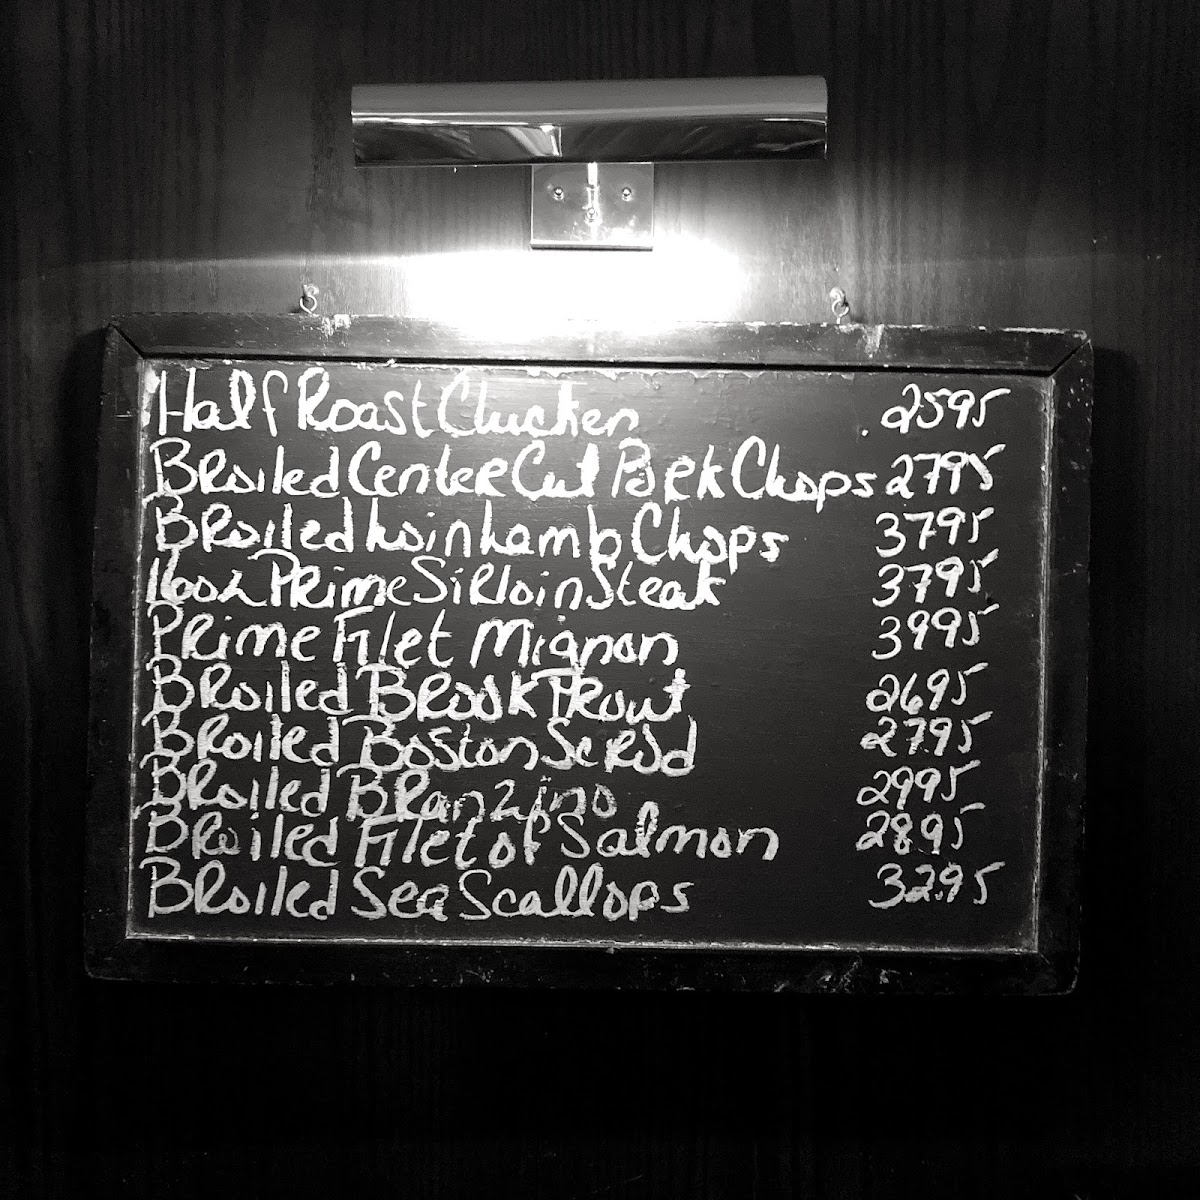 Half Roast Chicken 2595
Broiled Center Cut Pork Chops 2795
Broiled Loin Lamb Chops 3795
16oz Prime Sirloin Steak 3795
Prime Filet Mignon 3995
Broiled Brook Trout 2695
Broiled Boston Scrod 2795
Broiled Branzino 2995
Broiled Filet of Salmon 2895
Broiled Sea Scallops 3295